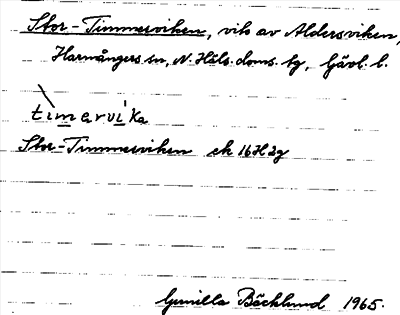 Stor-Timmerviken, vik av Aldersviken,
Harmångers sn, N. Häls. doms. tg, Gävl. l.
timarvika
Stor-Timmerviken ek 16H2g
Gunilla Bäcklund 1965.